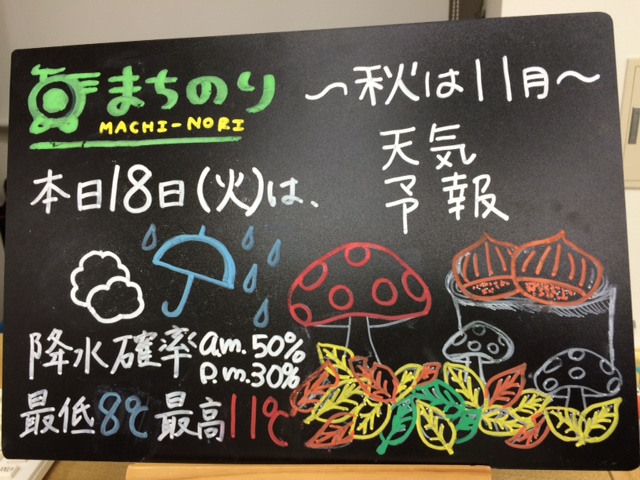 まちのり
MACHI-NORI
〜秋は11月〜
天気
予報
本日18日(火)は、
降水確率 a.m.50%
p.m.30%
最低8℃ 最高11℃